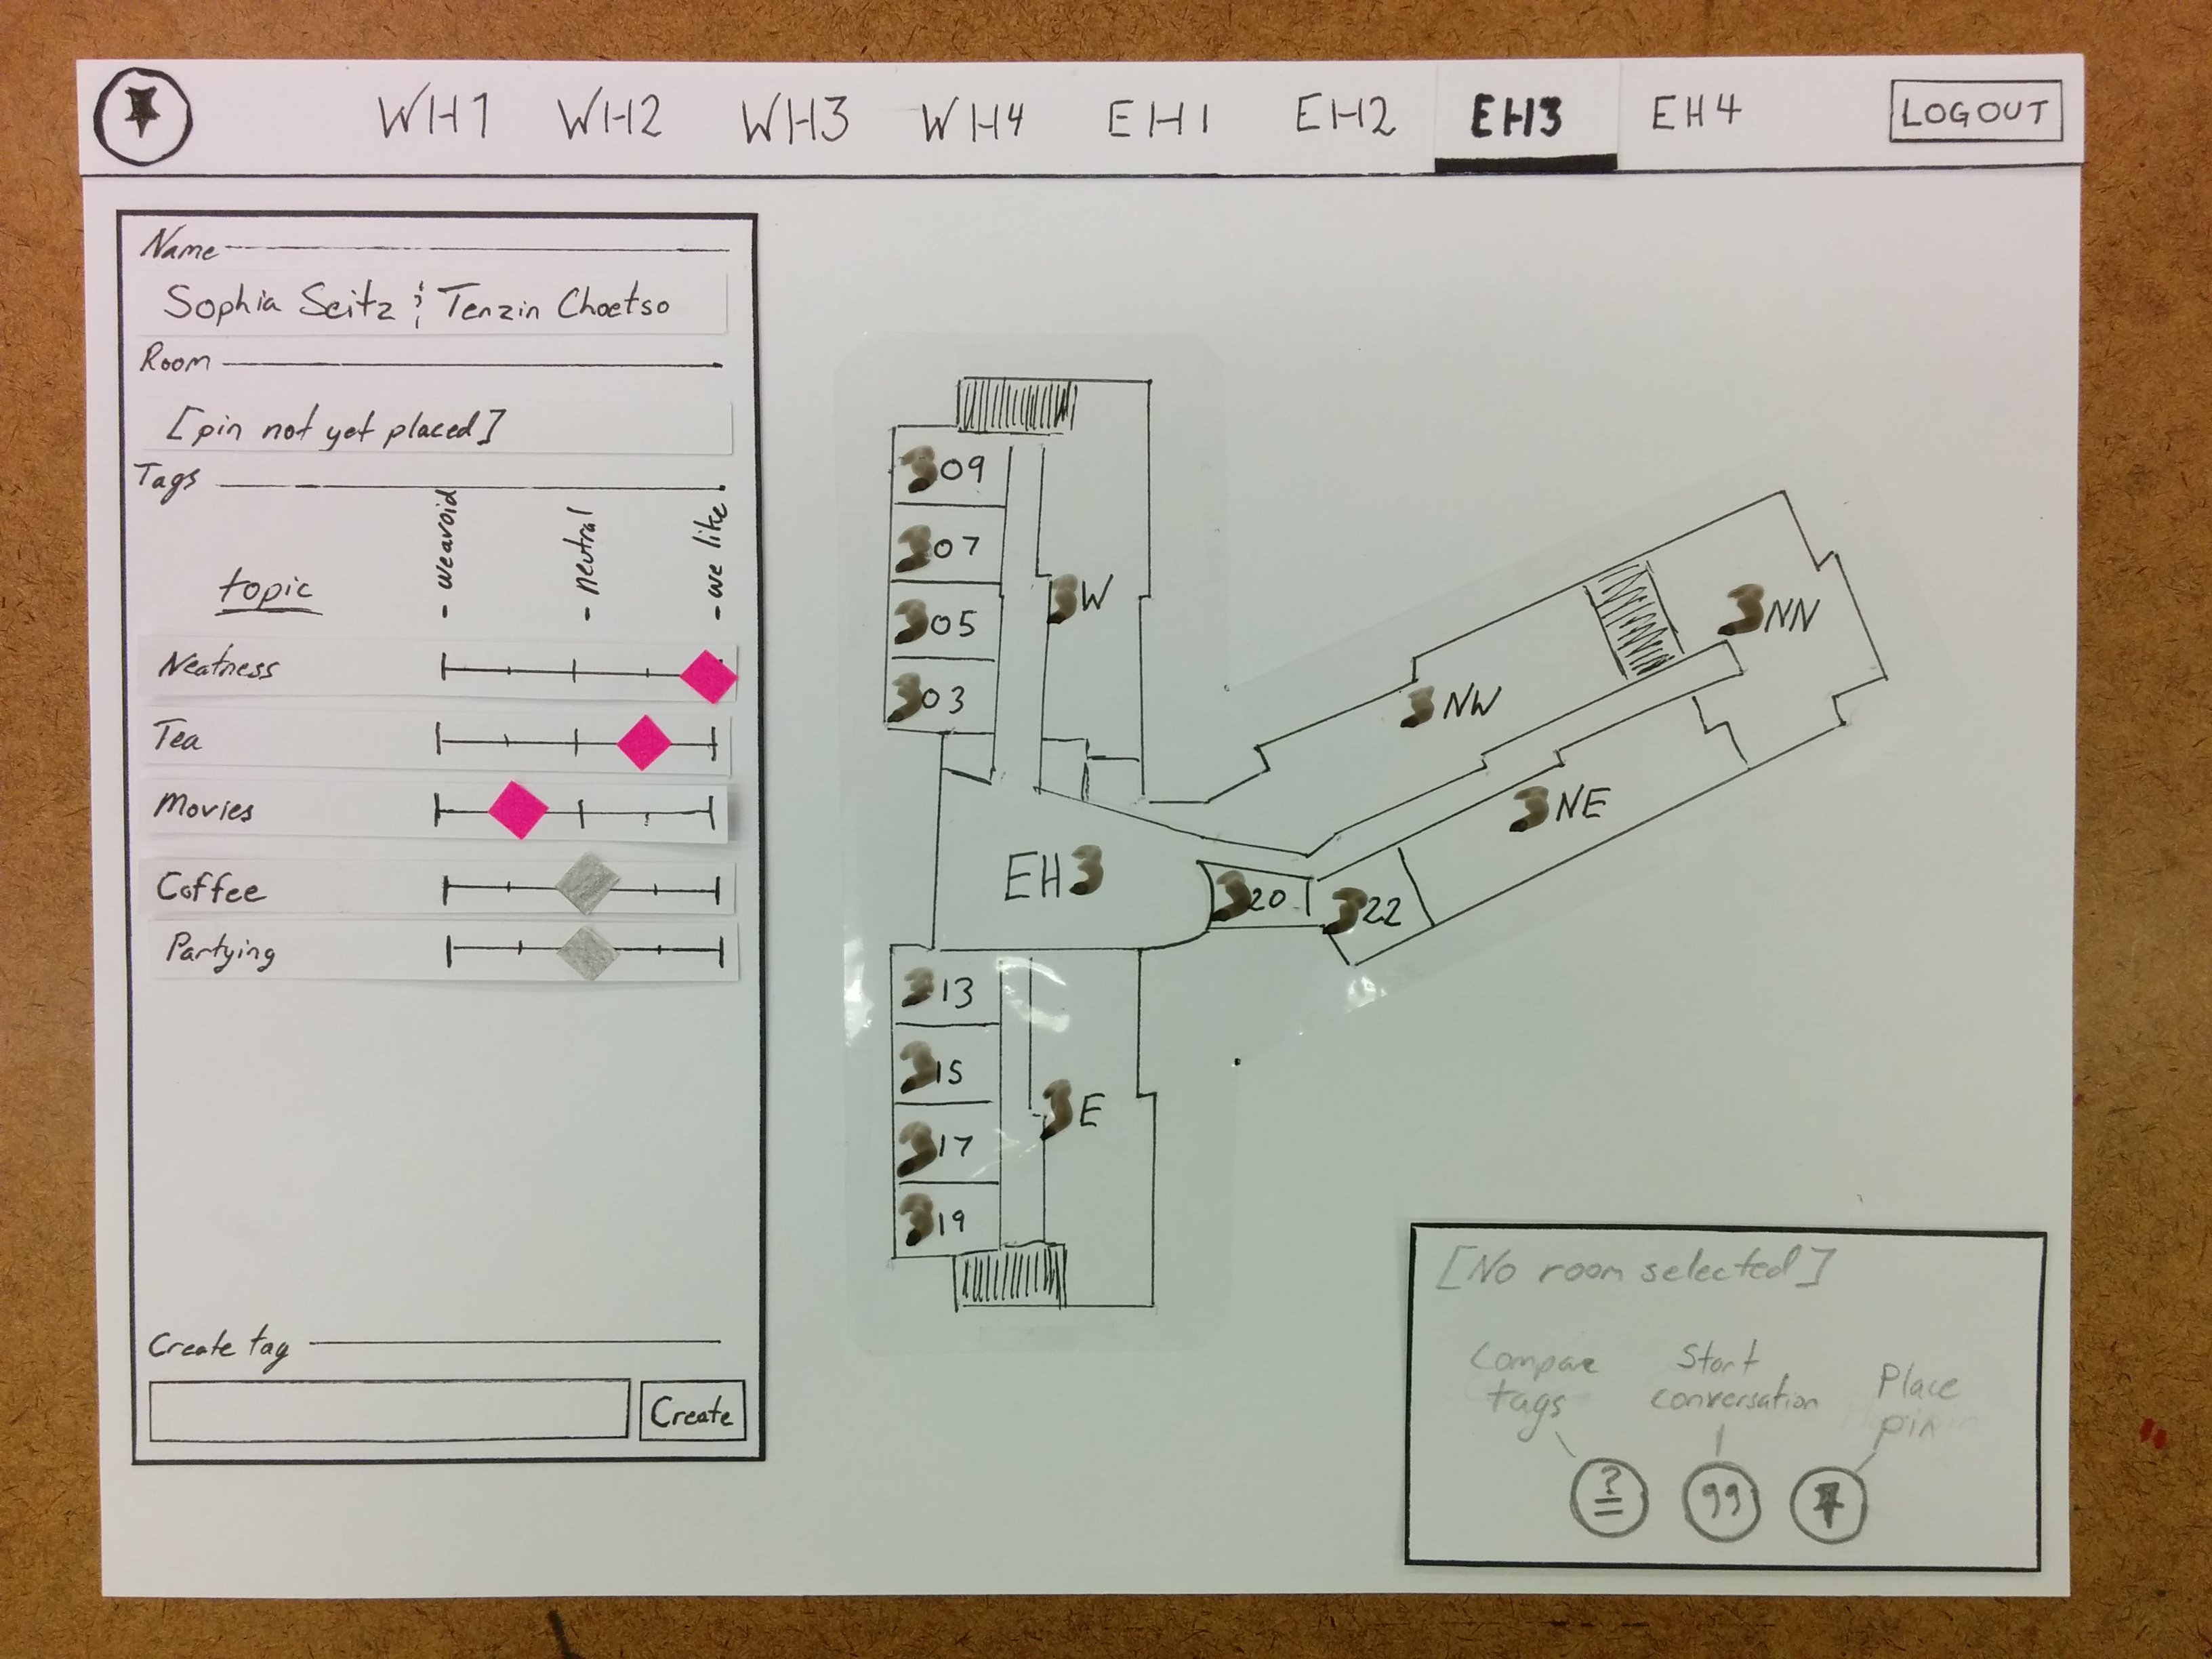 WH1 WH2 WH3 WH4 EH1 EH2 EH3 EH4 LOGOUT
Name
Sophia Seitz & Tenzin Choetso
Room
[pin not yet placed]
Tags
topic
- we avoid
- neutral
- we like
Neatness
Tea
Movies
Coffee
Partying
Create tag
Create
309
307
305
303
3W
EH3
313
315
317
319
3E
320
322
3NW
3NN
3NE
[No room selected]
Compare
tags
Start
conversation
Place
pin
?
=
99